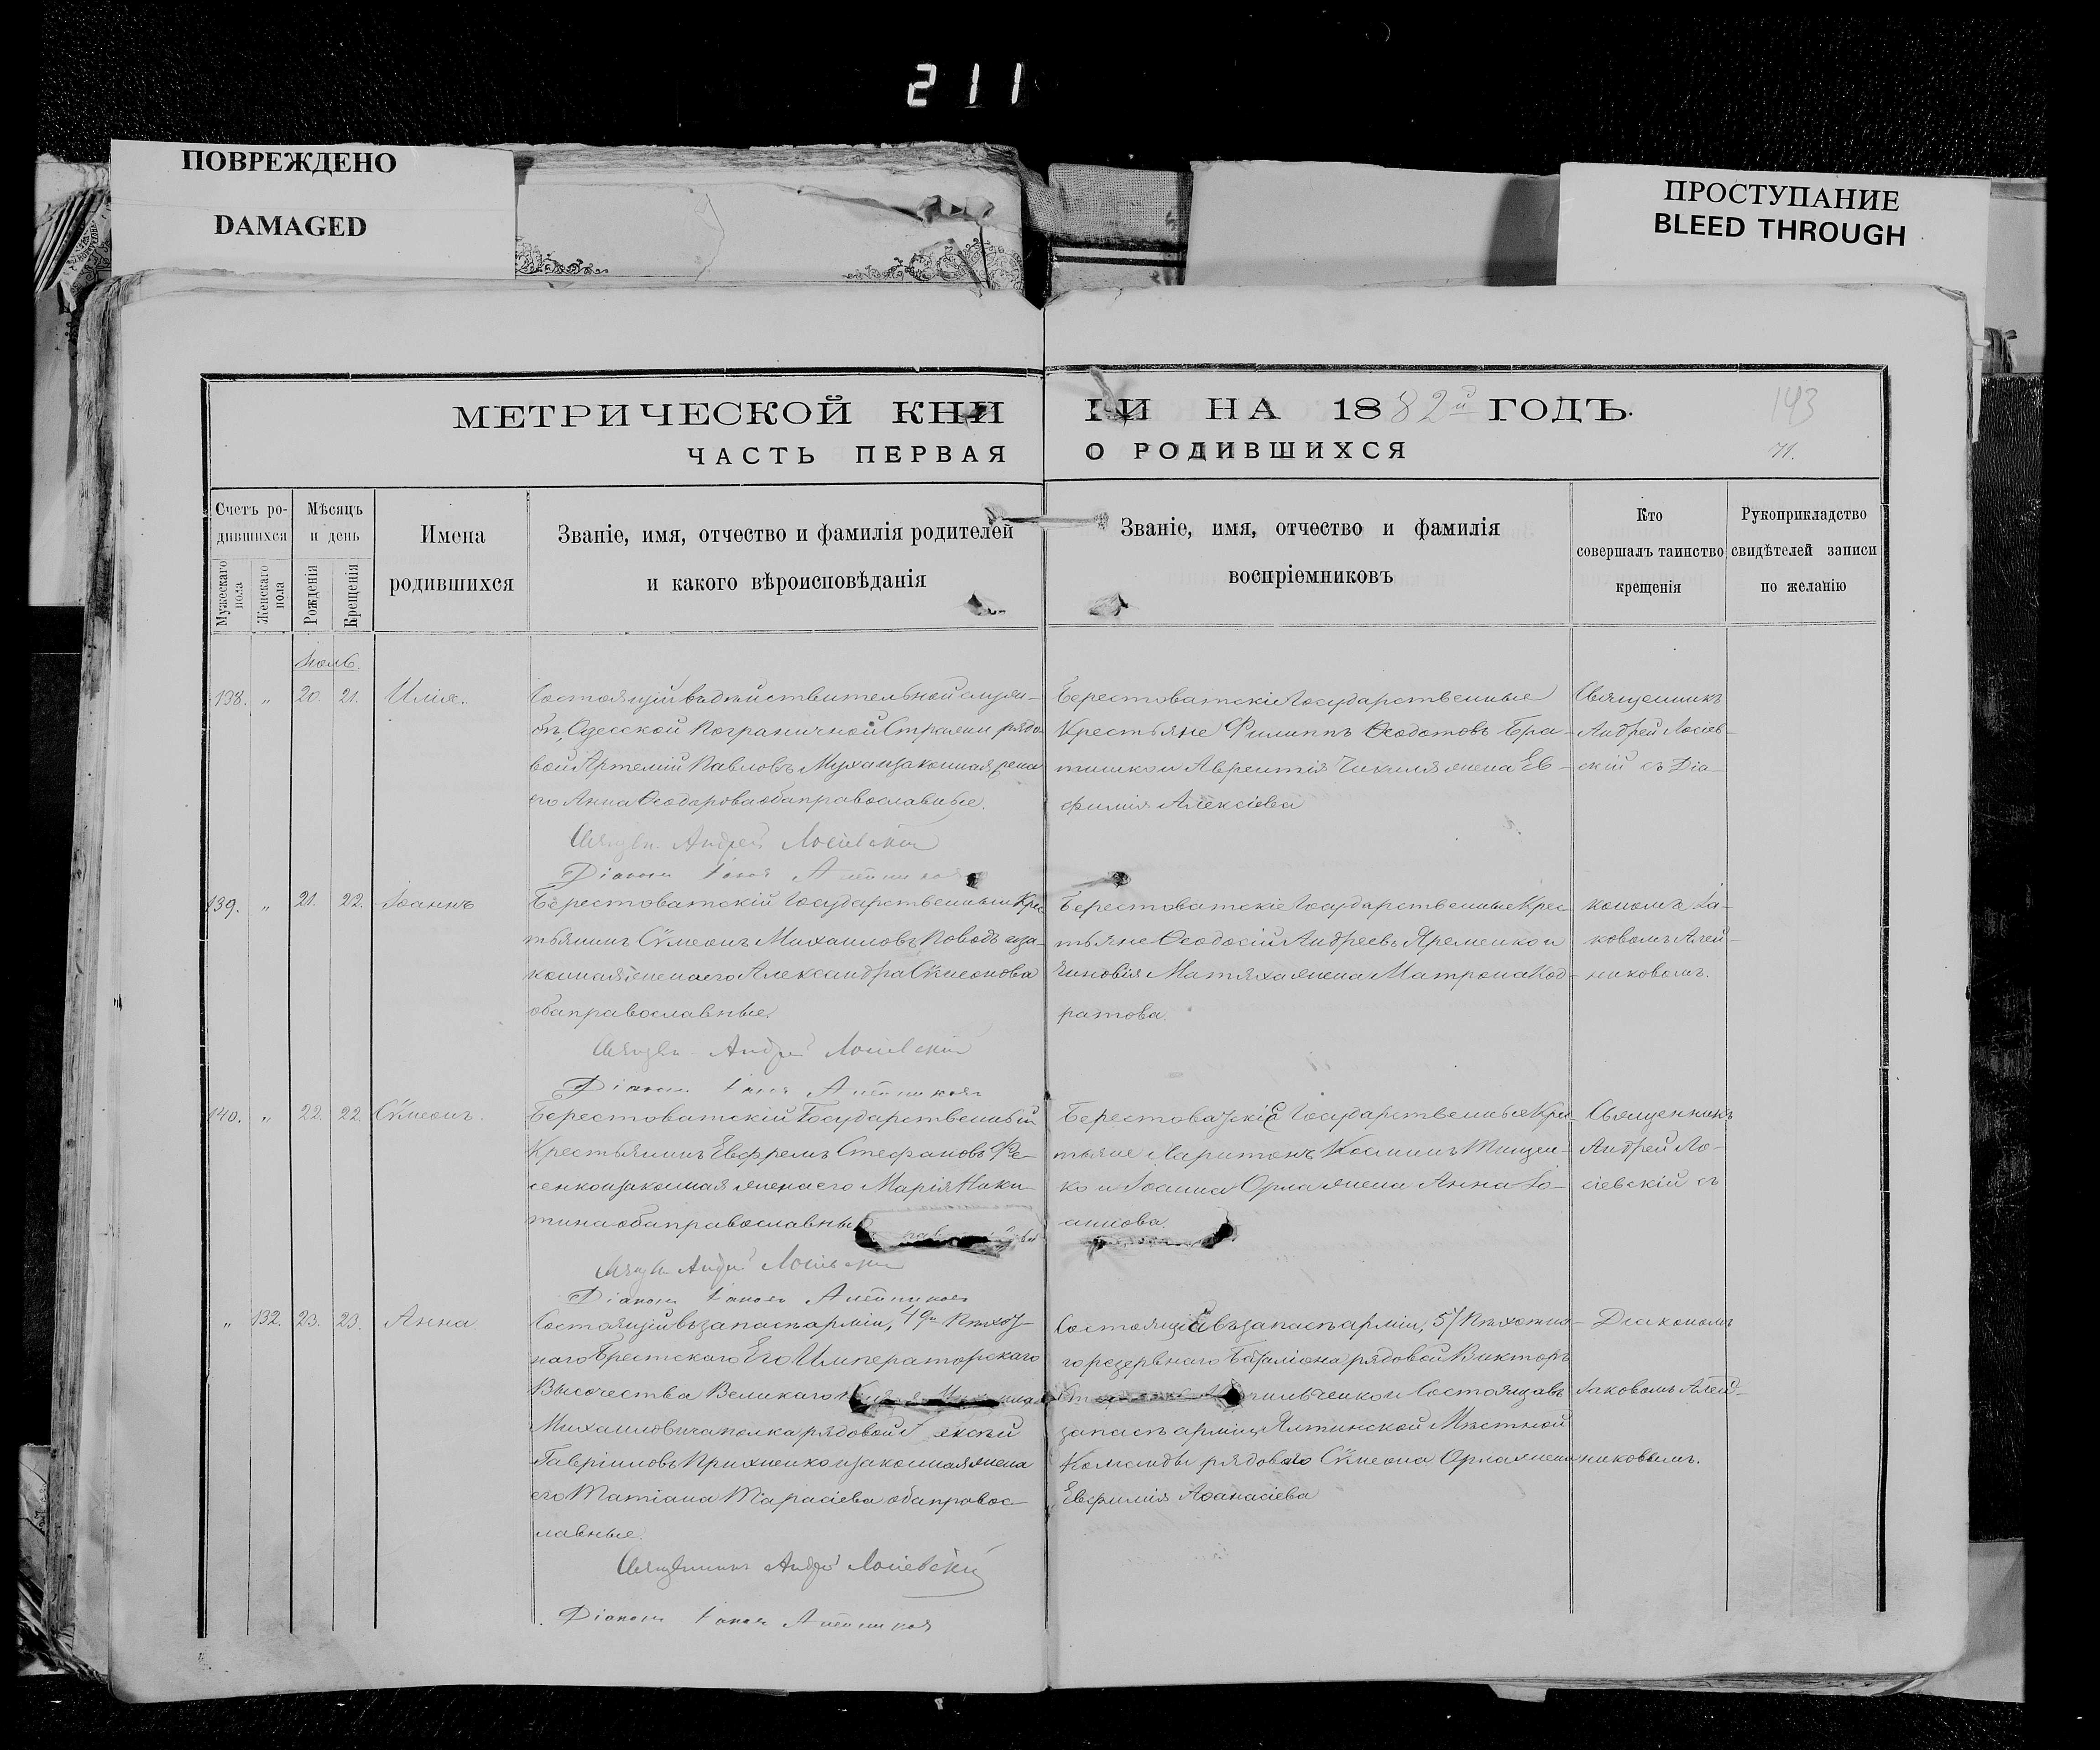 211
ПОВРЕЖДЕНО
DAMAGED
ПРОСТУПАНИЕ
BLEED THROUGH
МЕТРИЧЕСКОЙ КНИГИ НА 1882й ГОДЪ.
143
ЧАСТЬ ПЕРВАЯ О РОДИВШИХСЯ
71.
Счетъ ро-
дившихся
Мужескаго пола
Женскаго пола
Мѣсяцъ
и день
Рожденія
Крещенія
Имена
родившихся
Званіе, имя, отчество и фамилія родителей
и какого вѣроисповѣданія
Званіе, имя, отчество и фамилія
воспріемниковъ
Кто
совершалъ таинство
крещенія
Рукоприкладство
свидѣтелей записи
по желанію
Іюль
138. „ 20. 21. Илія.
Состоящій въ дѣйствительной служ-
бѣ, Одесской Пограничной Стражи рядо
вой Артемій Павловъ Муха и законная жена
его Анна Ѳеодорова оба православные.
Священ. Андрей Лосіевскій
Діаконъ Іаковъ
Берестоватскіе Государственные
Крестьяне Филиппъ Ѳеодотовъ Бра-
тишко и Аврентія жена Ев-
фимія Алексіева
Священникъ
Андрей Лосіев-
скій съ Діа-
139. „ 21. 22. Іоаннъ
Берестоватскій Государственный Крес
тьянинъ Сѵмеонъ Михаиловъ и за-
конная жена его Александра Сѵмеонова
оба православные.
Священ. Андрей Лосіевскій
Діаконъ Іаковъ
Берестоватскіе Государственные Крес-
тьяне Ѳеодосій Андреевъ Яременко и
Зиновія Матяха жена Матрона Код-
ратова.
кономъ Іа-
ковомъ Алей-
никовомъ.
140. „ 22. 22. Сѵмеонъ.
Берестоватскій Государственный
Крестьянинъ Евфремъ Стефановъ Фе-
сенко и законная жена его Марія Ники-
тина оба православные
Священ. Андрей Лосіевскій
Діаконъ Іаковъ
Берестоватскіе Государственные Крес
тьяне Харитонъ Косминъ Тищен-
ко и Іоанна Орла жена Анна Іо-
аннова.
Священникъ
Андрей Ло-
сіевскій съ
„ 132. 23. 23. Анна
Состоящій въ запасѣ арміи, 49го Пѣхот-
наго Брестскаго Его Императорскаго
Высочества Великаго
Михаиловича полка рядовой
Гавріиловъ Прихненко и законная жена
его Татіана Тарасіева оба правос-
лавные.
Священникъ Андрей Лосіевскій
Діаконъ Іаковъ
Состоящій въ запасѣ арміи, 57 Пѣхотна-
го резервнаго Баталіона рядовой Викторъ
и Состоящаго въ
запасѣ арміи, Ялтинской Мѣстной
Команды рядоваго Сѵмеона Орла жена
Евфимія Аѳанасіева
Діакономъ
Іаковомъ Алей-
никовымъ.